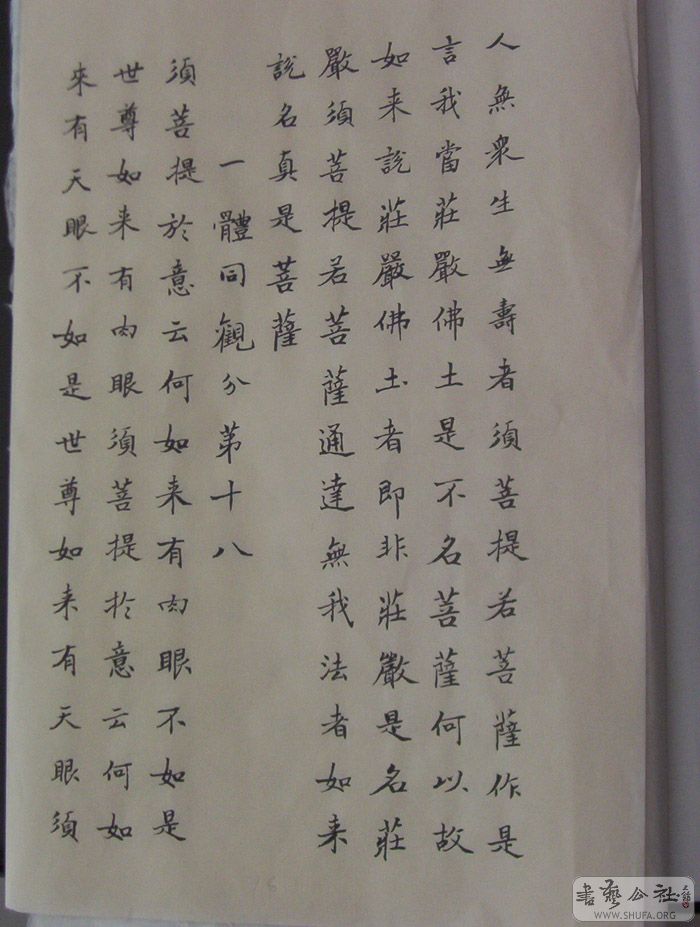 人無衆生無壽者須菩提若菩薩作是
言我當莊嚴佛土是不名菩薩何以故
如来說莊嚴佛土者即非莊嚴是名莊
嚴須菩提若菩薩通達無我法者如来
說名真是菩薩
一體同觀分第十八
須菩提於意云何如来有肉眼不如是
世尊如来有肉眼須菩提於意云何如
來有天眼不如是世尊如来有天眼須
書藝公社
WWW.SHUFA.ORG